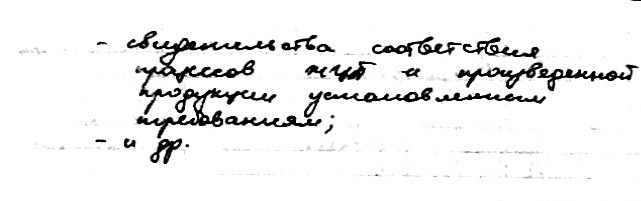 - свидетельства соответствия
процессов ЖЦП и произведенной
продукции установленным
требованиям;
- и др.